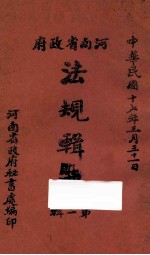 中華民國十七年三月三十一日
河南省政府
法規輯
第一輯
河南省政府秘書處編印